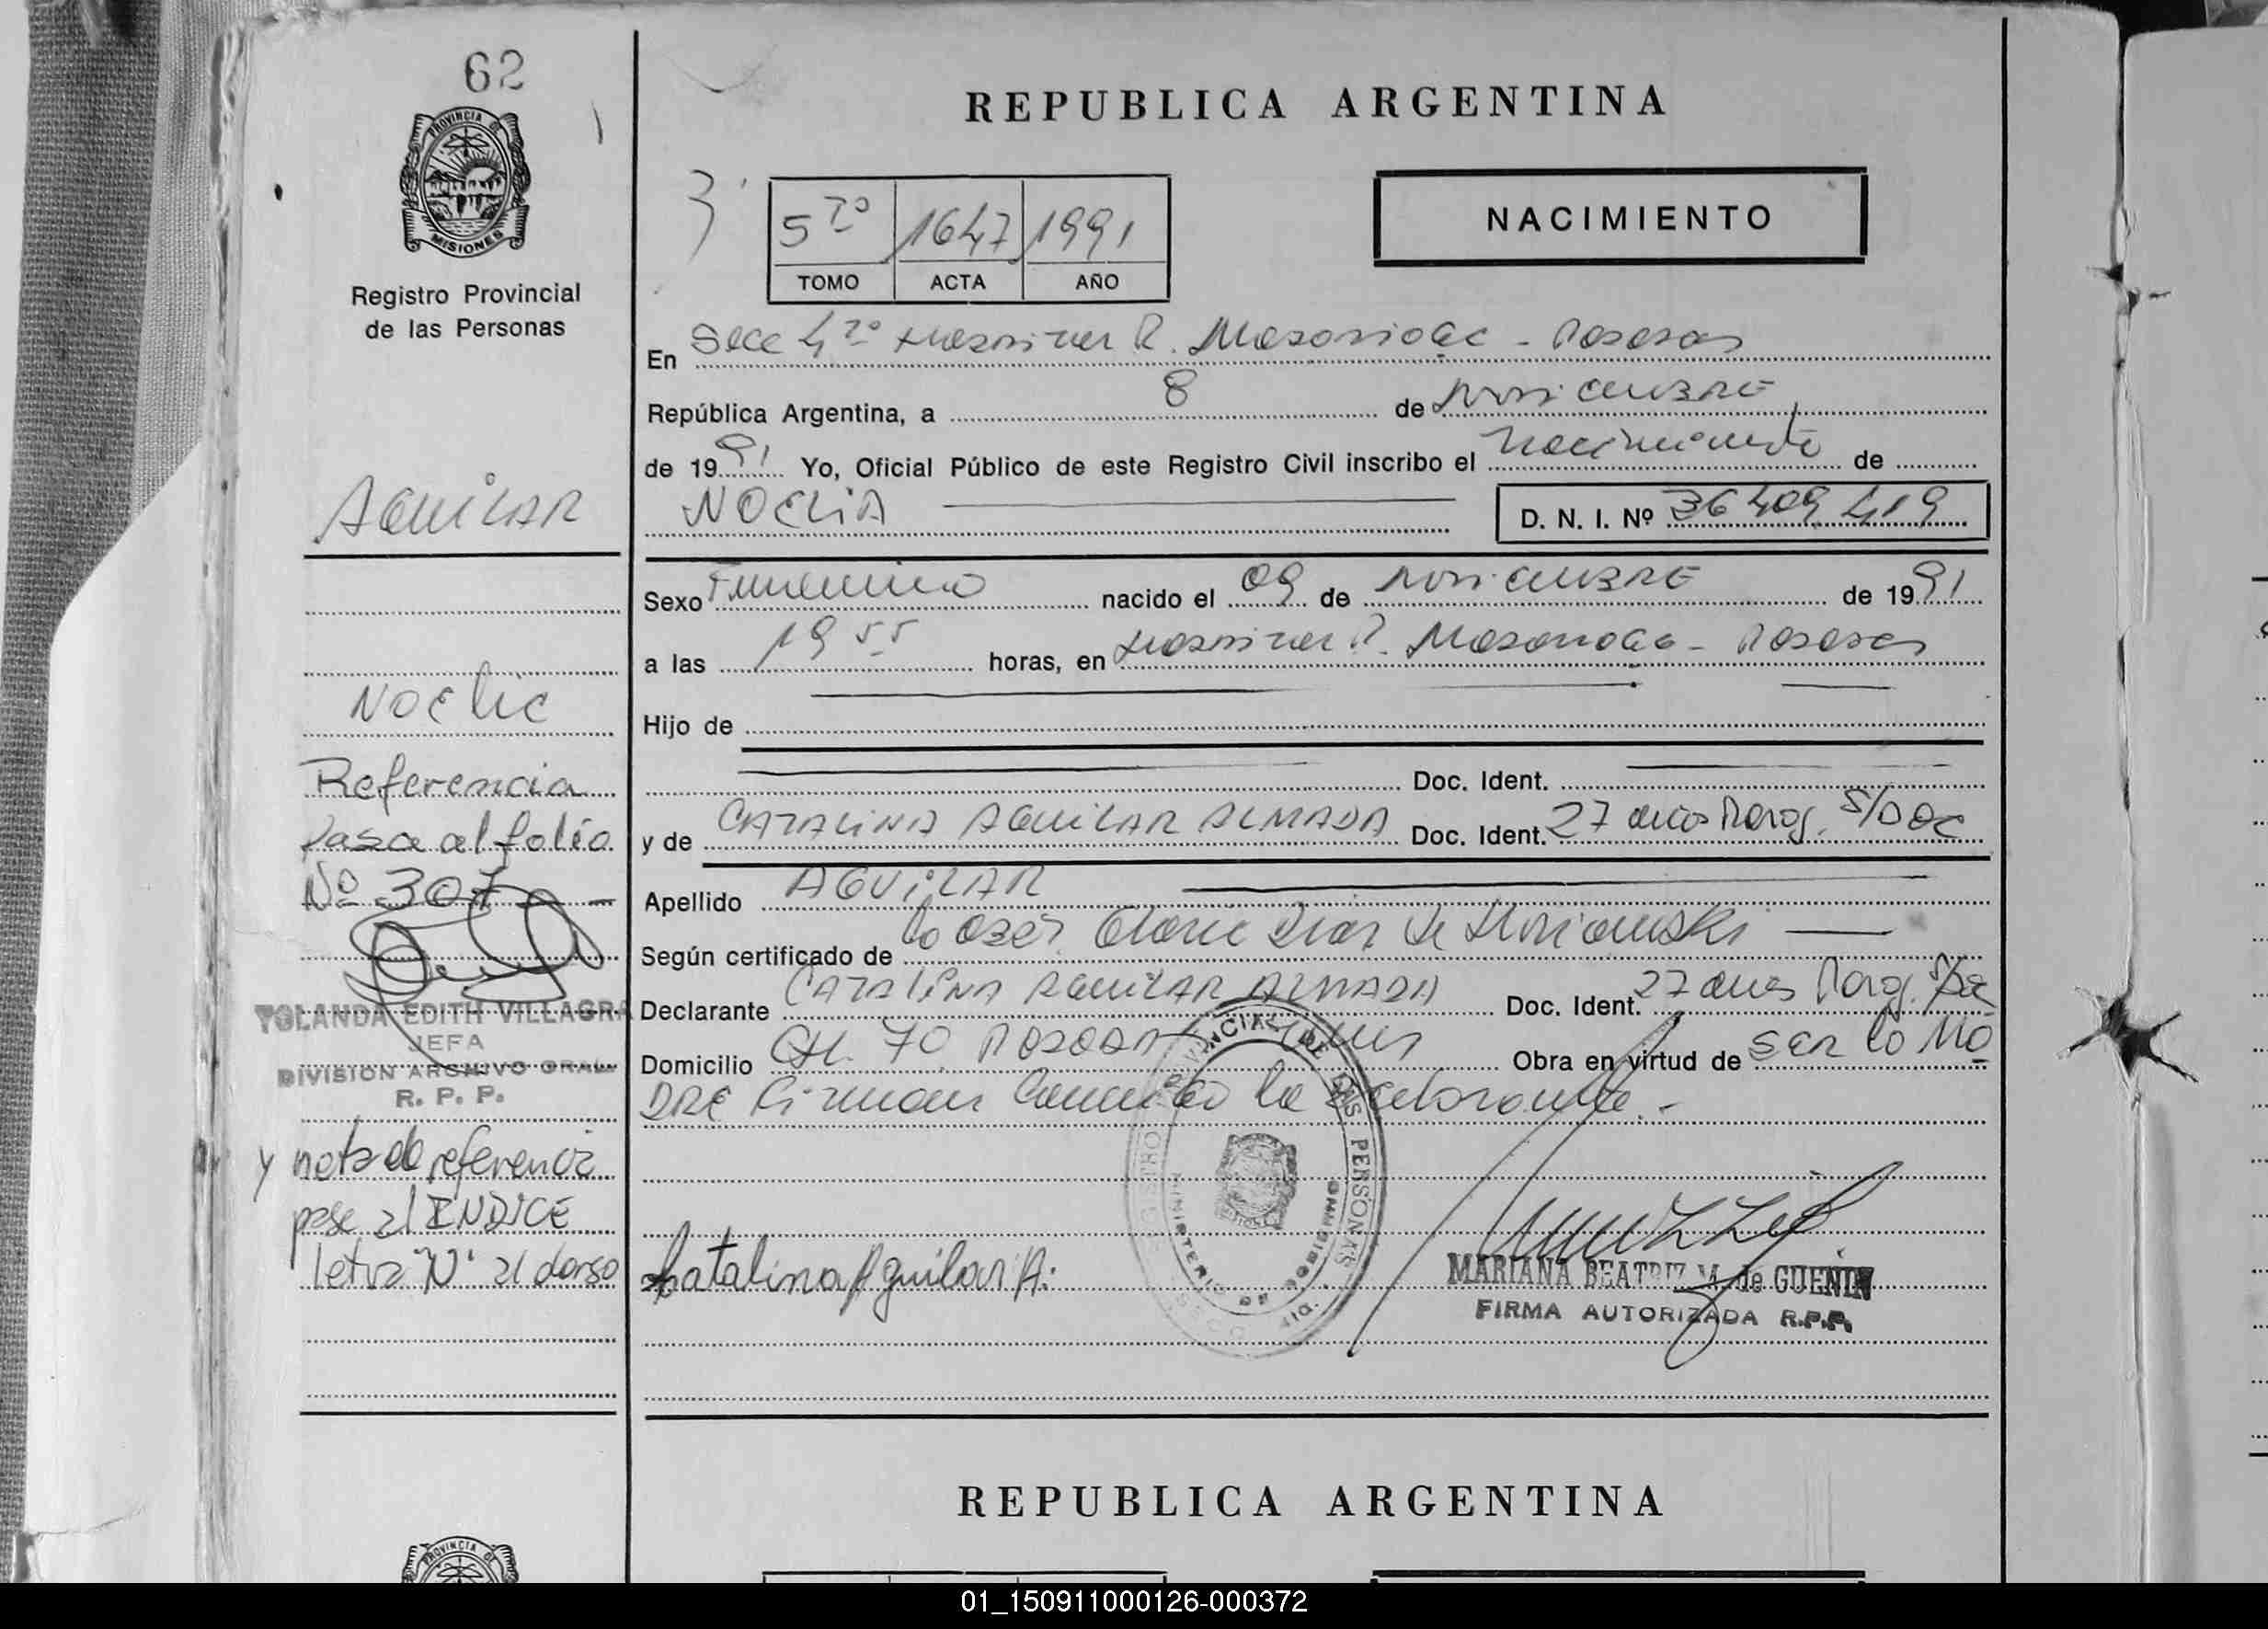 62
PROVINCIA DE
MISIONES
Registro Provincial
de las Personas
AGUILAR
Noelia
Referencia
Pasa al folio
Nº 307
YOLANDA EDITH VILLAGRA
JEFA
DIVISION ARCHIVO GRAL.
R. P. P.
y nota de referencia
pase al INDICE
letra "N" al dorso
REPUBLICA ARGENTINA
3
5to 1647 1991
TOMO ACTA AÑO
NACIMIENTO
En Secc 4ta Hospital R. Madariaga - Posadas
República Argentina, a 8 de Noviembre
de 1991 Yo, Oficial Público de este Registro Civil inscribo el nacimiento de
NOELIA D. N. I. Nº 36409419
Sexo Femenino nacido el 09 de Noviembre de 1991
a las 19 55 horas, en Hospital R. Madariaga - Posadas
Hijo de
Doc. Ident.
y de CATALINA AGUILAR ALMADA Doc. Ident. 27 años Parag. S/Doc
Apellido AGUILAR
Según certificado de la Obst.
Declarante CATALINA AGUILAR ALMADA Doc. Ident. 27 años Parag. S/Doc
Domicilio CH. 70 Posadas Obra en virtud de SER la MA
DRE Firman la declarante.-
Catalina Aguilar A.
PERSONAS
MINISTERIO DE GOBIERNO
MARIANA BEATRIZ M. de GUENIN
FIRMA AUTORIZADA R.P.P.
REPUBLICA ARGENTINA
PROVINCIA DE
01_150911000126-000372